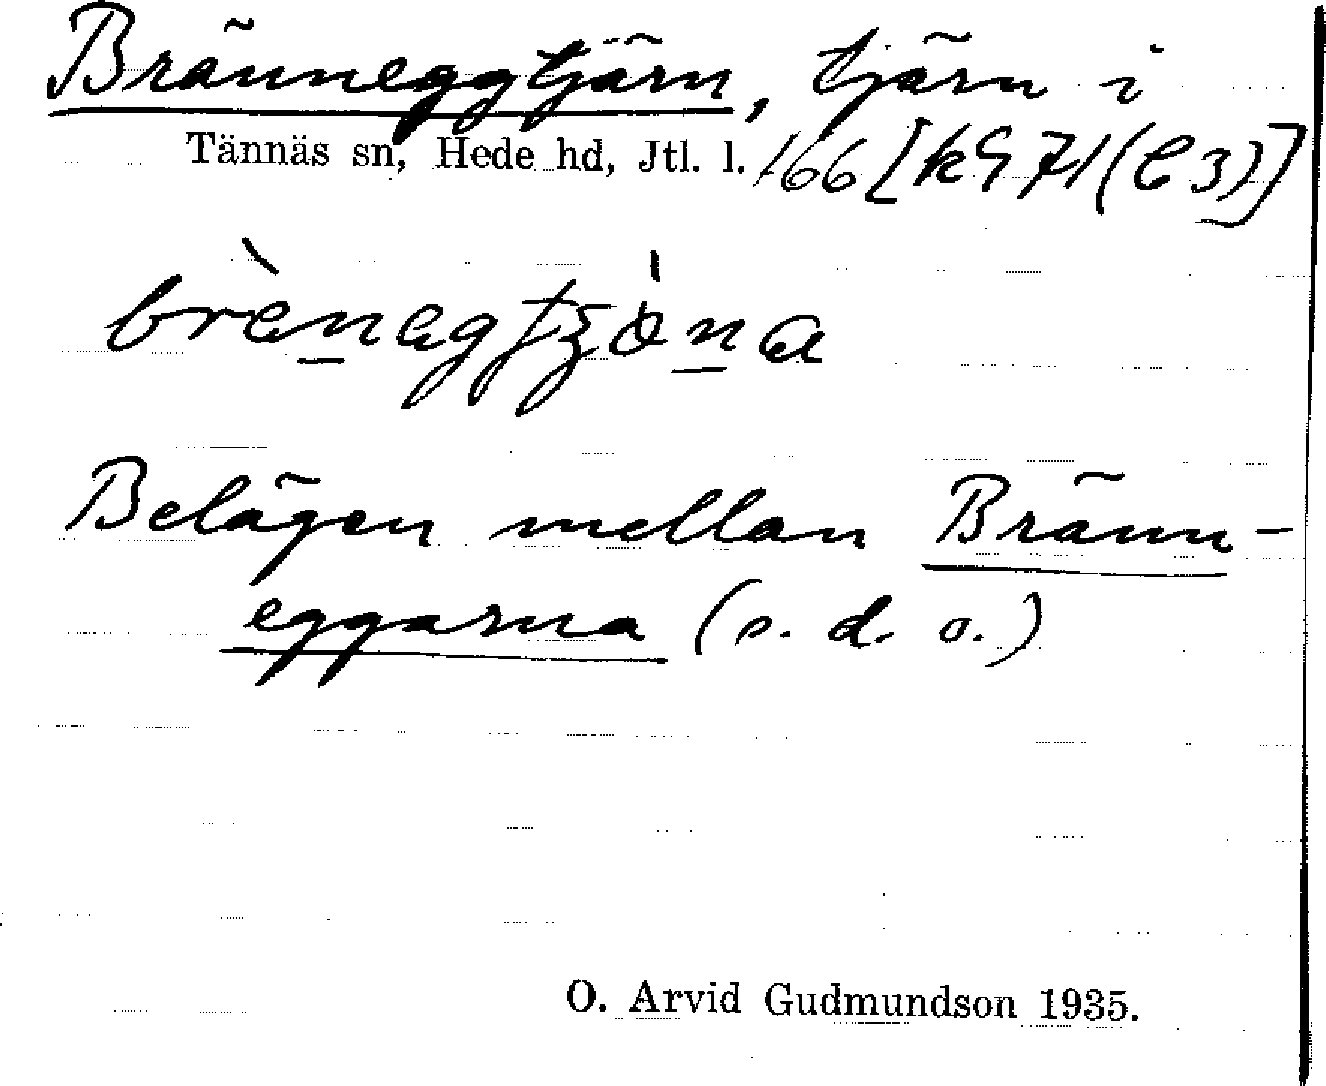 Bränneggtjärn, tjärn i
Tännäs sn, Hede hd, Jtl. l. 166 [kG 71 (C 3)]
Belägen mellan Bränn-
eggarna (s. d. o.)
O. Arvid Gudmundson 1935.